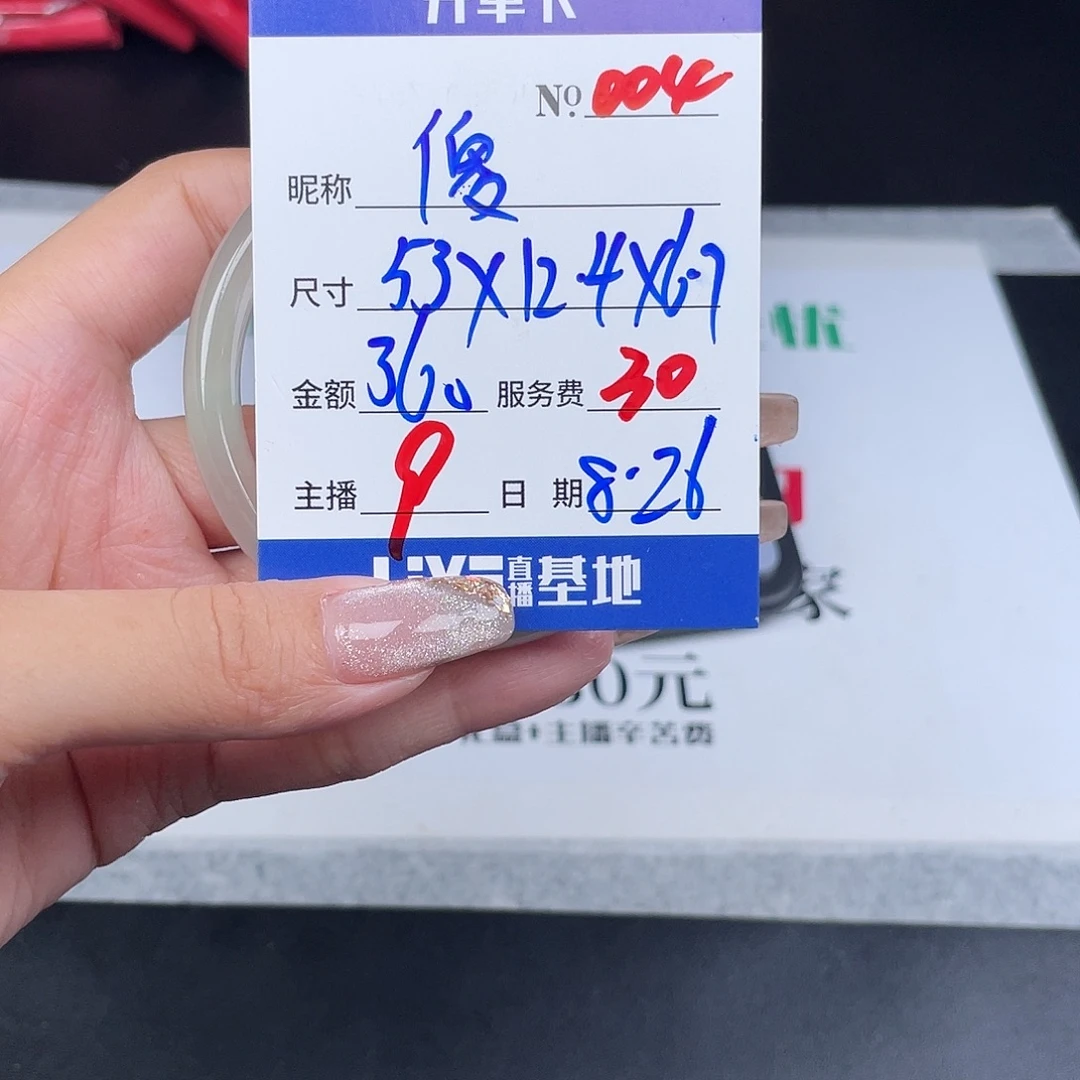 开单卡
No. 004
昵称 傻
尺寸 53X12.4X6.7
金额 360 服务费 30
主播 9 日期 8.26
LIVE直播基地
家
30元
主播辛苦费